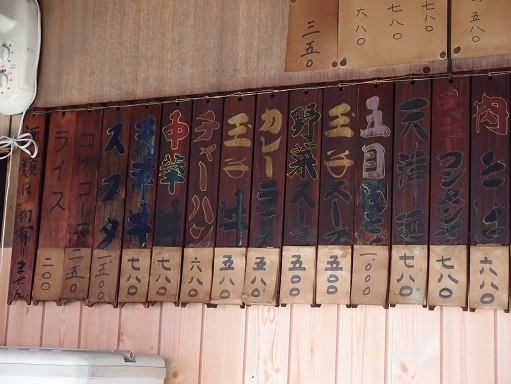 五八〇
七八〇
七八〇
六八〇
三五〇
肉そば 六八〇
七八〇
天津麺 七八〇
五目堅 一.〇〇〇
玉子スープ 五〇〇
野菜スープ 五〇〇
カレーライス 五八〇
玉子丼 五八〇
チャーハン 六八〇
中華丼 七八〇
天津丼 七八〇
スブタ 一.五〇〇
コカコーラ 二五〇
ライス 二〇〇
有りません